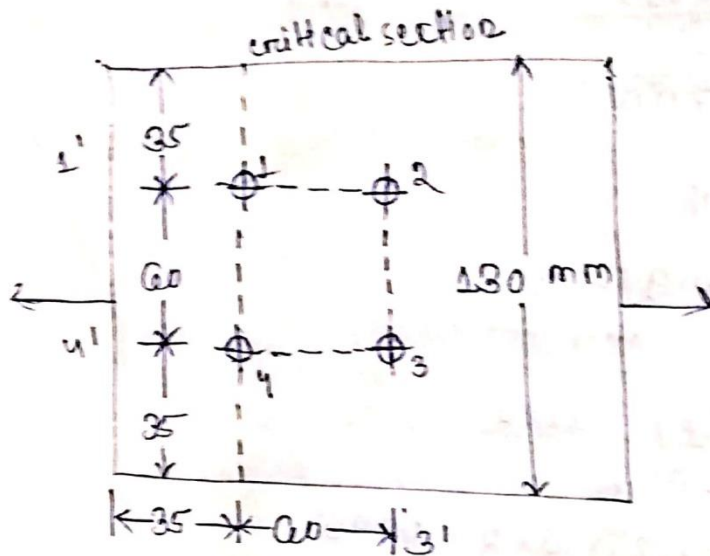 critical section
35
1'
1
2
60
130 mm
4'
4
3
35
35
60
3'